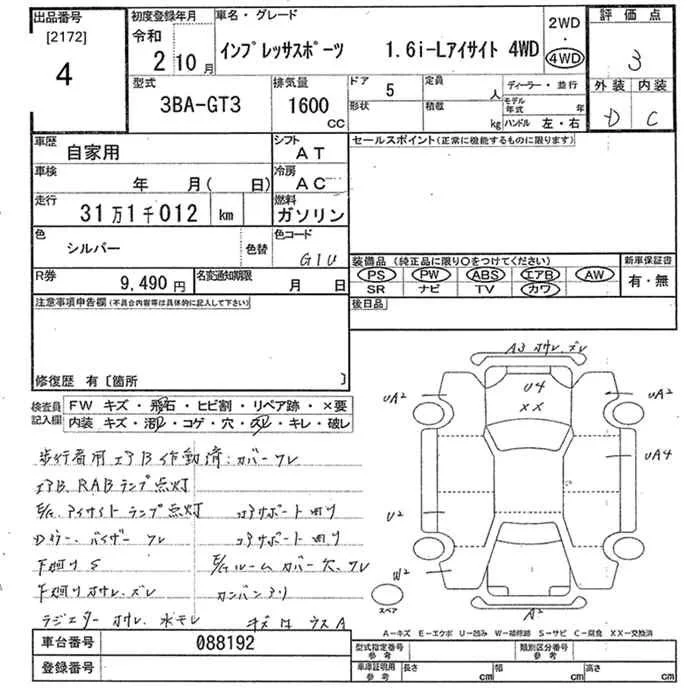 出品番号
[2172]
4
初度登録年月
令和
2 10月
車名・グレード
インプレッサスポーツ 1.6i-Lアイサイト 4WD
2WD
・
4WD
評価点
3
外装 内装
D C
型式
3BA-GT3
排気量
1600
CC
ドア 5
形状
定員 人
積載 kg
ディーラー・並行
モデル年式 年
ハンドル 左・右
車歴
自家用
シフト
AT
車検
年 月( 日)
冷房
AC
走行
31万1千012 km
燃料
ガソリン
色
シルバー
色替
色コード
G1U
R券
9,490円
名変通知期限
月 日
セールスポイント(正常に機能するものに限ります)
装備品(純正品に限り○をつけてください)
PS PW ABS エアB AW
SR ナビ TV カワ
新車保証書
有・無
後日品
注意事項申告欄(不具合内容等は具体的に記入して下さい)
修復歴 有〔箇所 〕
検査員記入欄
FW キズ・飛石・ヒビ割・リペア跡・×要
内装 キズ・汚レ・コゲ・穴・スレ・キレ・破レ
歩行者用エアB作動済:カバーワレ
エアB、RABランプ点灯
E/G、アイサイトランプ点灯 コアサポート曲り
Dラー、バイザーワレ コアサポート曲り
下廻りS E/Gルームカバー穴、ワレ
下廻りオサレ、ズレ カンバンアリ
ラジエターオサレ、水モレ キズ凹 ウスA
A3 オサレ、ズレ
U4
XX
UA2
UA2
UA4
U2
W2
A2
スペア
A-キズ E-エクボ U-凹み W-補修跡 S-サビ C-腐食 XX-交換済
車台番号
088192
登録番号
型式指定番号
参考
類別区分番号
参考
車庫証明用
参考
長さ cm
幅 cm
高さ cm